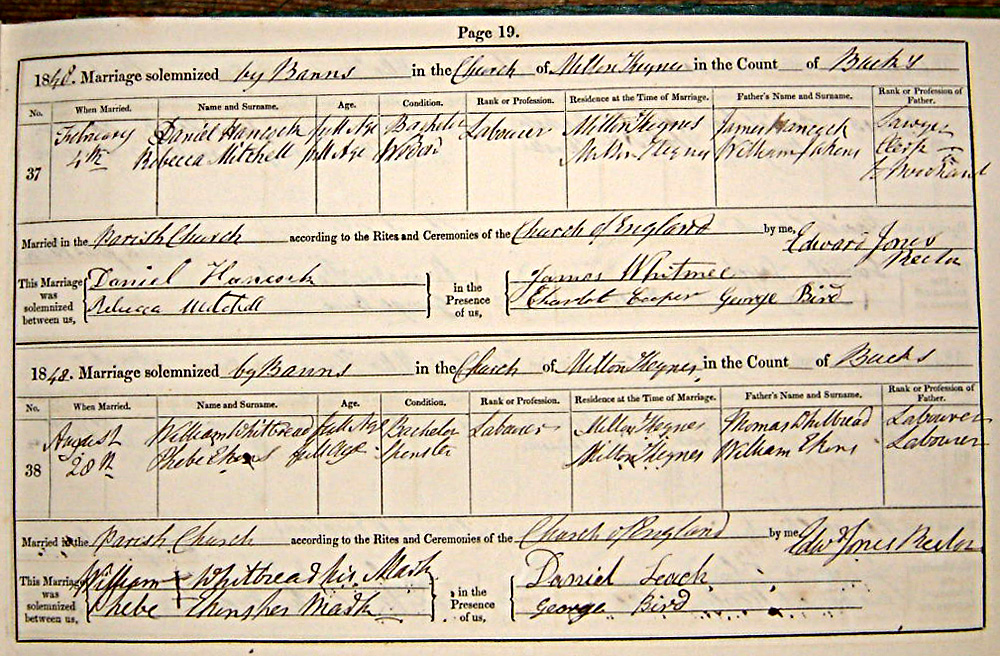 Page 19.
1848. Marriage solemnized by Banns in the Church of Milton Keynes in the Count of Bucks
No. When Married. Name and Surname. Age. Condition. Rank or Profession. Residence at the Time of Marriage. Father's Name and Surname. Rank or Profession of Father.
37 February 4th Daniel Hancock full Age Bachelor Labourer Milton Keynes James Hancock Sawyer
Rebecca Mitchell full Age Milton Keynes William
Married in the Parish Church according to the Rites and Ceremonies of the Church of England by me, Edward Jones Rector
This Marriage was solemnized between us, Daniel Hancock Rebecca Mitchell in the Presence of us, James Whitmee Cooper George Bird
1848. Marriage solemnized by Banns in the Church of Milton Keynes in the Count of Bucks
No. When Married. Name and Surname. Age. Condition. Rank or Profession. Residence at the Time of Marriage. Father's Name and Surname. Rank or Profession of Father.
38 August 28th William Whitbread full Age Bachelor Labourer Milton Keynes Thomas Whitbread Labourer
Phebe Ekens full Age Spinster Milton Keynes William Ekens Labourer
Married in the Parish Church according to the Rites and Ceremonies of the Church of England by me, Edwd Jones Rector
This Marriage was solemnized between us, William + Whitbread his Mark Phebe + Ekens her Mark in the Presence of us, Daniel Leach George Bird